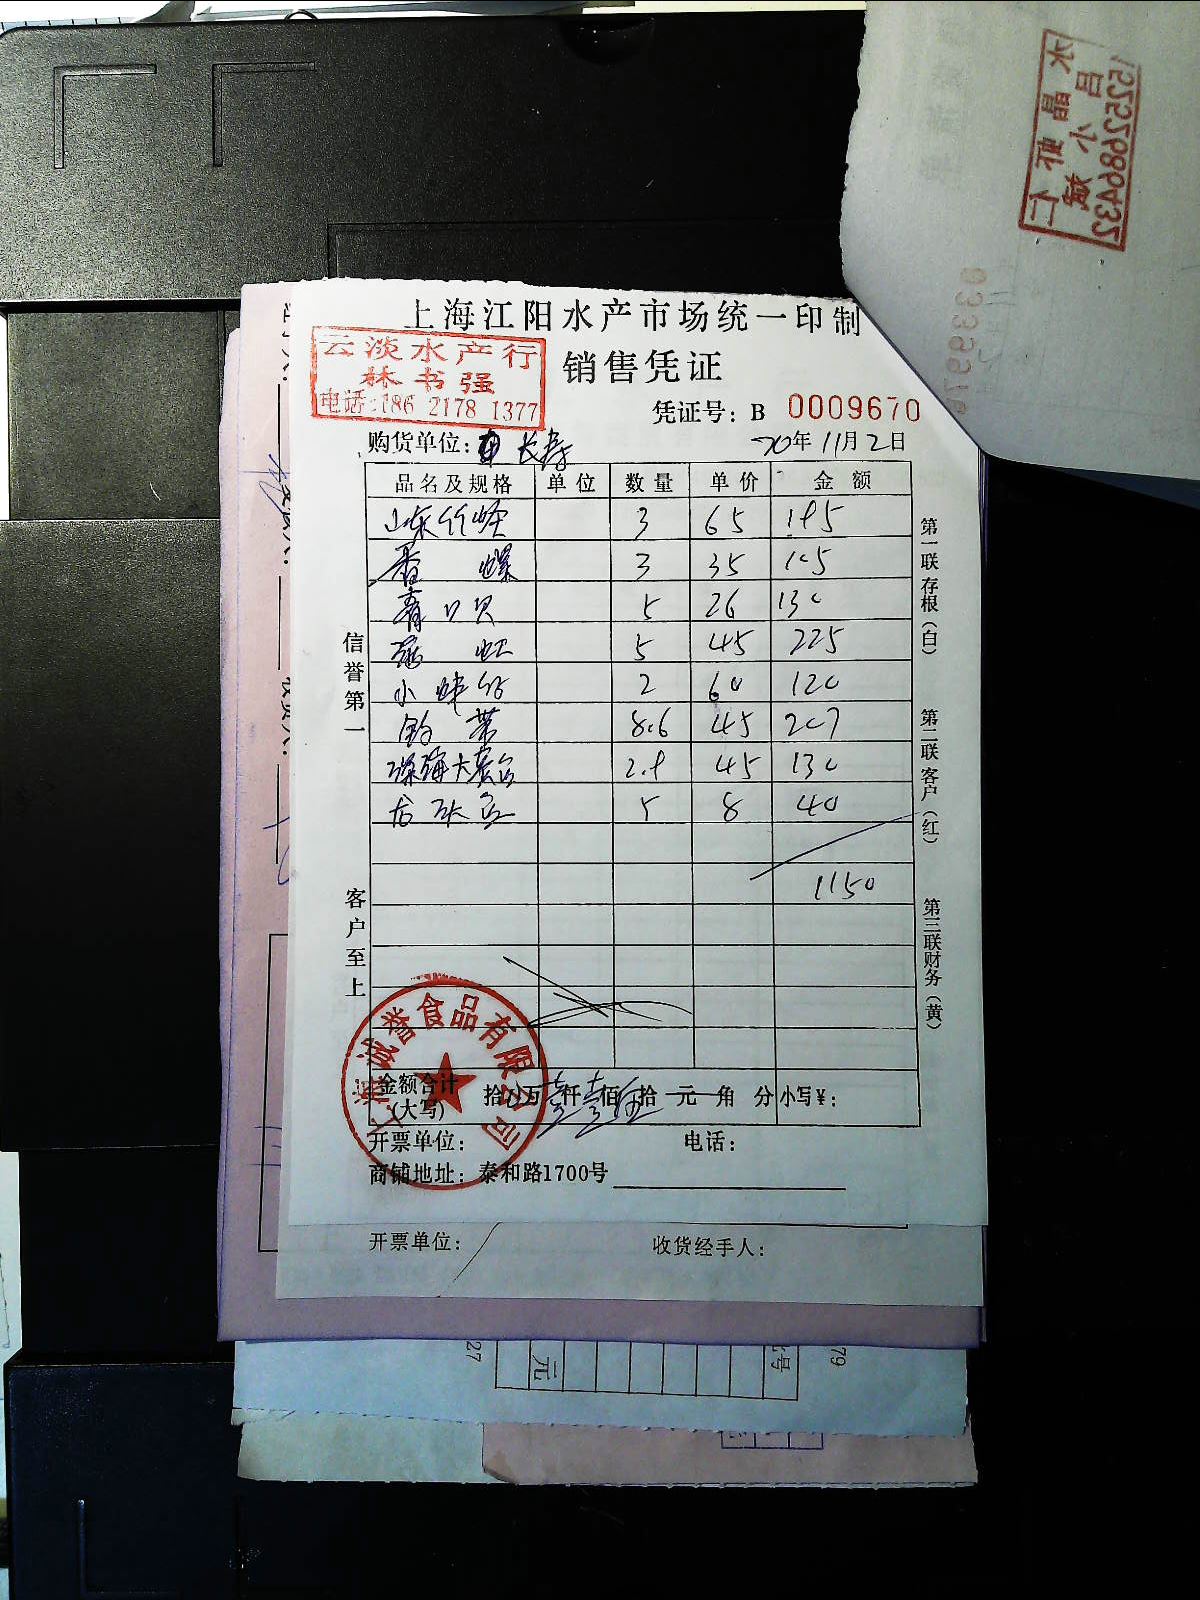 上海江阳水产市场统一印制
云淡水产行
林书强
电话:186 2178 1377
销售凭证
凭证号: B 0009670
购货单位: 长寿 20年11月2日
品名及规格 单位 数量 单价 金额
山东竹蛏 3 65 195
香螺 3 35 105
青口贝 5 26 130
5 45 225
小 2 60 120
8.6 45 207
深海大黄鱼 2.9 45 130
龙头鱼 5 8 40
1150
信誉第一
客户至上
第一联存根(白)
第二联客户(红)
第三联财务(黄)
上海诚誉食品有限公司
金额合计
(大写) 拾 万 仟 佰 拾 元 角 分 小写¥:
开票单位: 电话:
商铺地址: 泰和路1700号
开票单位: 收货经手人:
15252686432
吕小敏
水晶虾仁
元
27
79